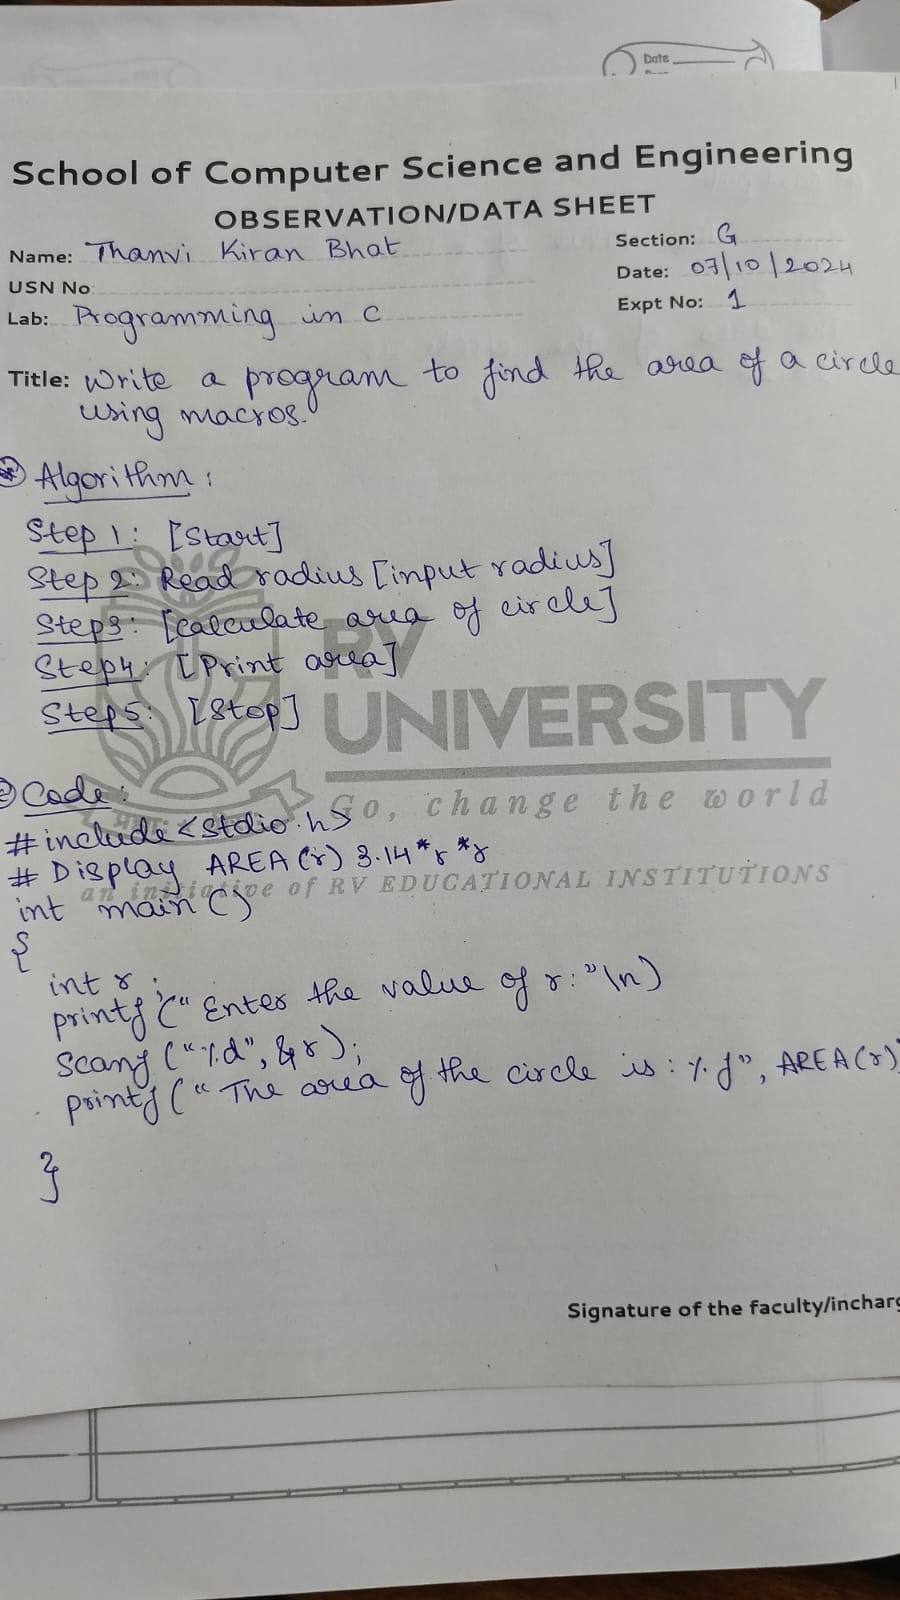 Date
School of Computer Science and Engineering
OBSERVATION/DATA SHEET
Name: Thanvi Kiran Bhat
Section: G
USN No:
Date: 07/10/2024
Lab: Programming in C
Expt No: 1
Title: Write a program to find the area of a circle
using macros.
Algorithm:
Step 1: [Start]
Step 2: Read radius [input radius]
Step3: [calculate area of circle]
Step4: [Print area]
Step5: [Stop]
RV
UNIVERSITY
Go, change the world
an initiative of RV EDUCATIONAL INSTITUTIONS
Code:
#include <stdio.h>
# Display AREA(r) 3.14*r*r
int main()
{
int r;
printf("Enter the value of r:"\n)
Scanf("%d", &r);
printf("The area of the circle is: %f", AREA(r)
}
Signature of the faculty/incharg